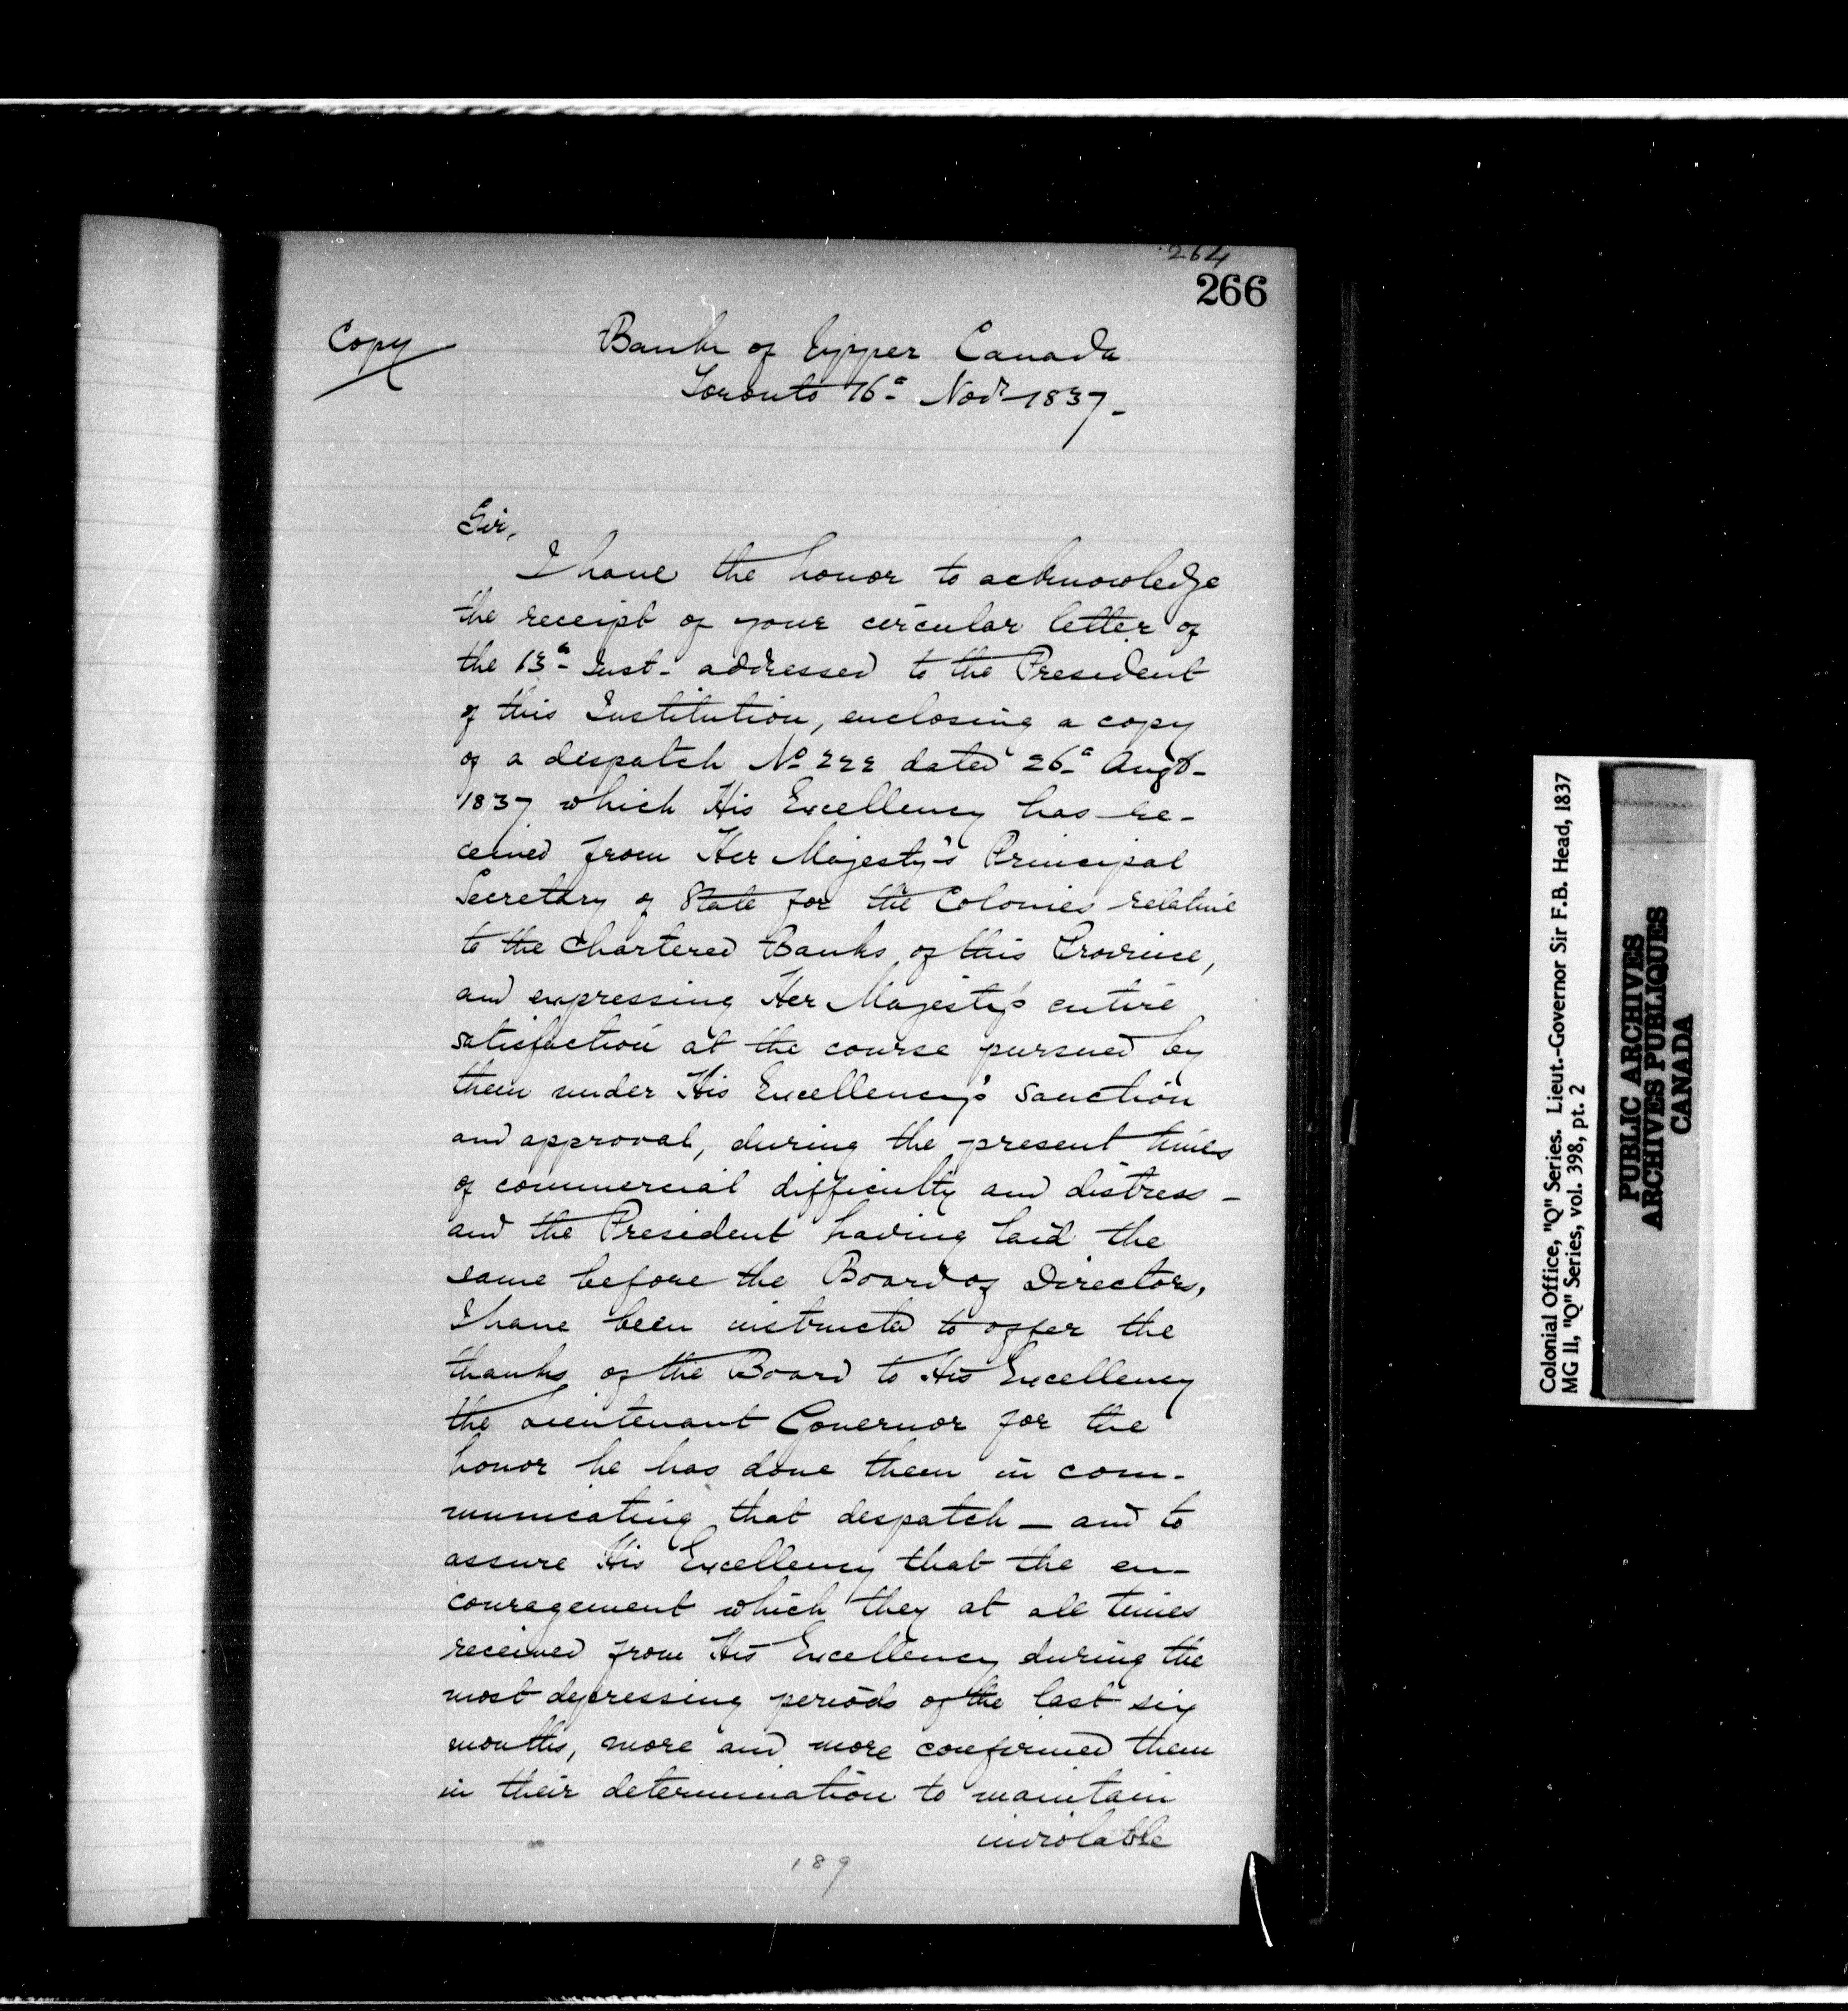 264
266
Copy
Bank of Upper Canada
Toronto 16th Novr 1837-
Sir,
I have the honor to acknowledge
the receipt of your circular letter of
the 13th Inst- addressed to the President
of this Institution, enclosing a copy
of a despatch No 222 dated 26th Augt-
1837 which His Excellency has re-
ceived from Her Majesty's Principal
Secretary of State for the Colonies relative
to the Chartered Banks of this Province,
and expressing Her Majesty's entire
satisfaction at the course pursued by
them under His Excellency's sanction
and approval, during the present times
of commercial difficulty and distress-
and the President having laid the
same before the Board of Directors,
I have been instructed to offer the
thanks of the Board to His Excellency
the Lieutenant Governor for the
honor he has done them in com-
municating that despatch — and to
assure His Excellency that the en-
couragement which they at all times
received from His Excellency during the
most depressing periods of the last six
months, more and more confirmed them
in their determination to maintain
inviolable
189
Colonial Office, "Q" Series. Lieut.-Governor Sir F.B. Head, 1837
MG 11, "Q" Series, vol. 398, pt. 2
PUBLIC ARCHIVES
ARCHIVES PUBLIQUES
CANADA